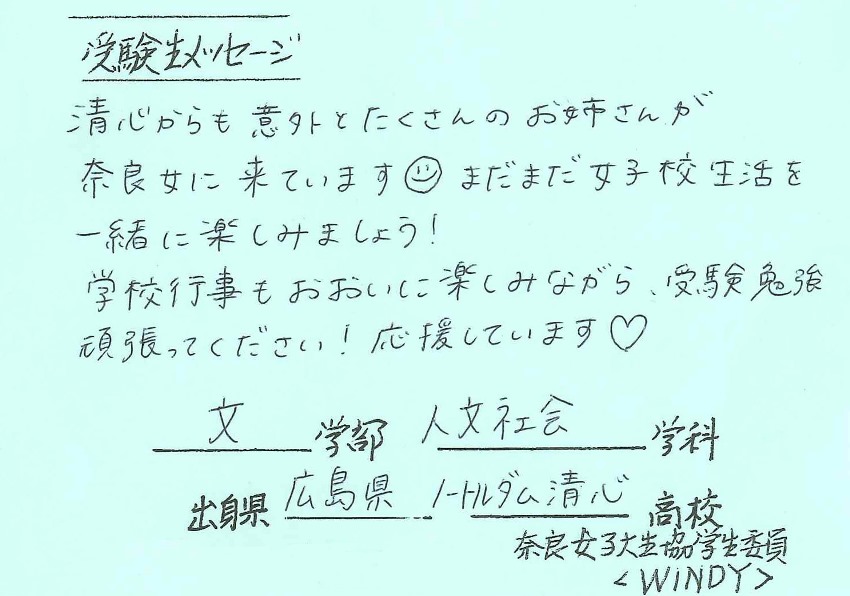 受験生メッセージ
清心からも意外とたくさんのお姉さんが
奈良女に来ています☺まだまだ女子校生活を
一緒に楽しみましょう!
学校行事もおおいに楽しみながら、受験勉強
頑張ってください!応援しています♡
文学部 人文社会学科
出身県 広島県 ノートルダム清心高校
奈良女子大生協学生委員
<WINDY>